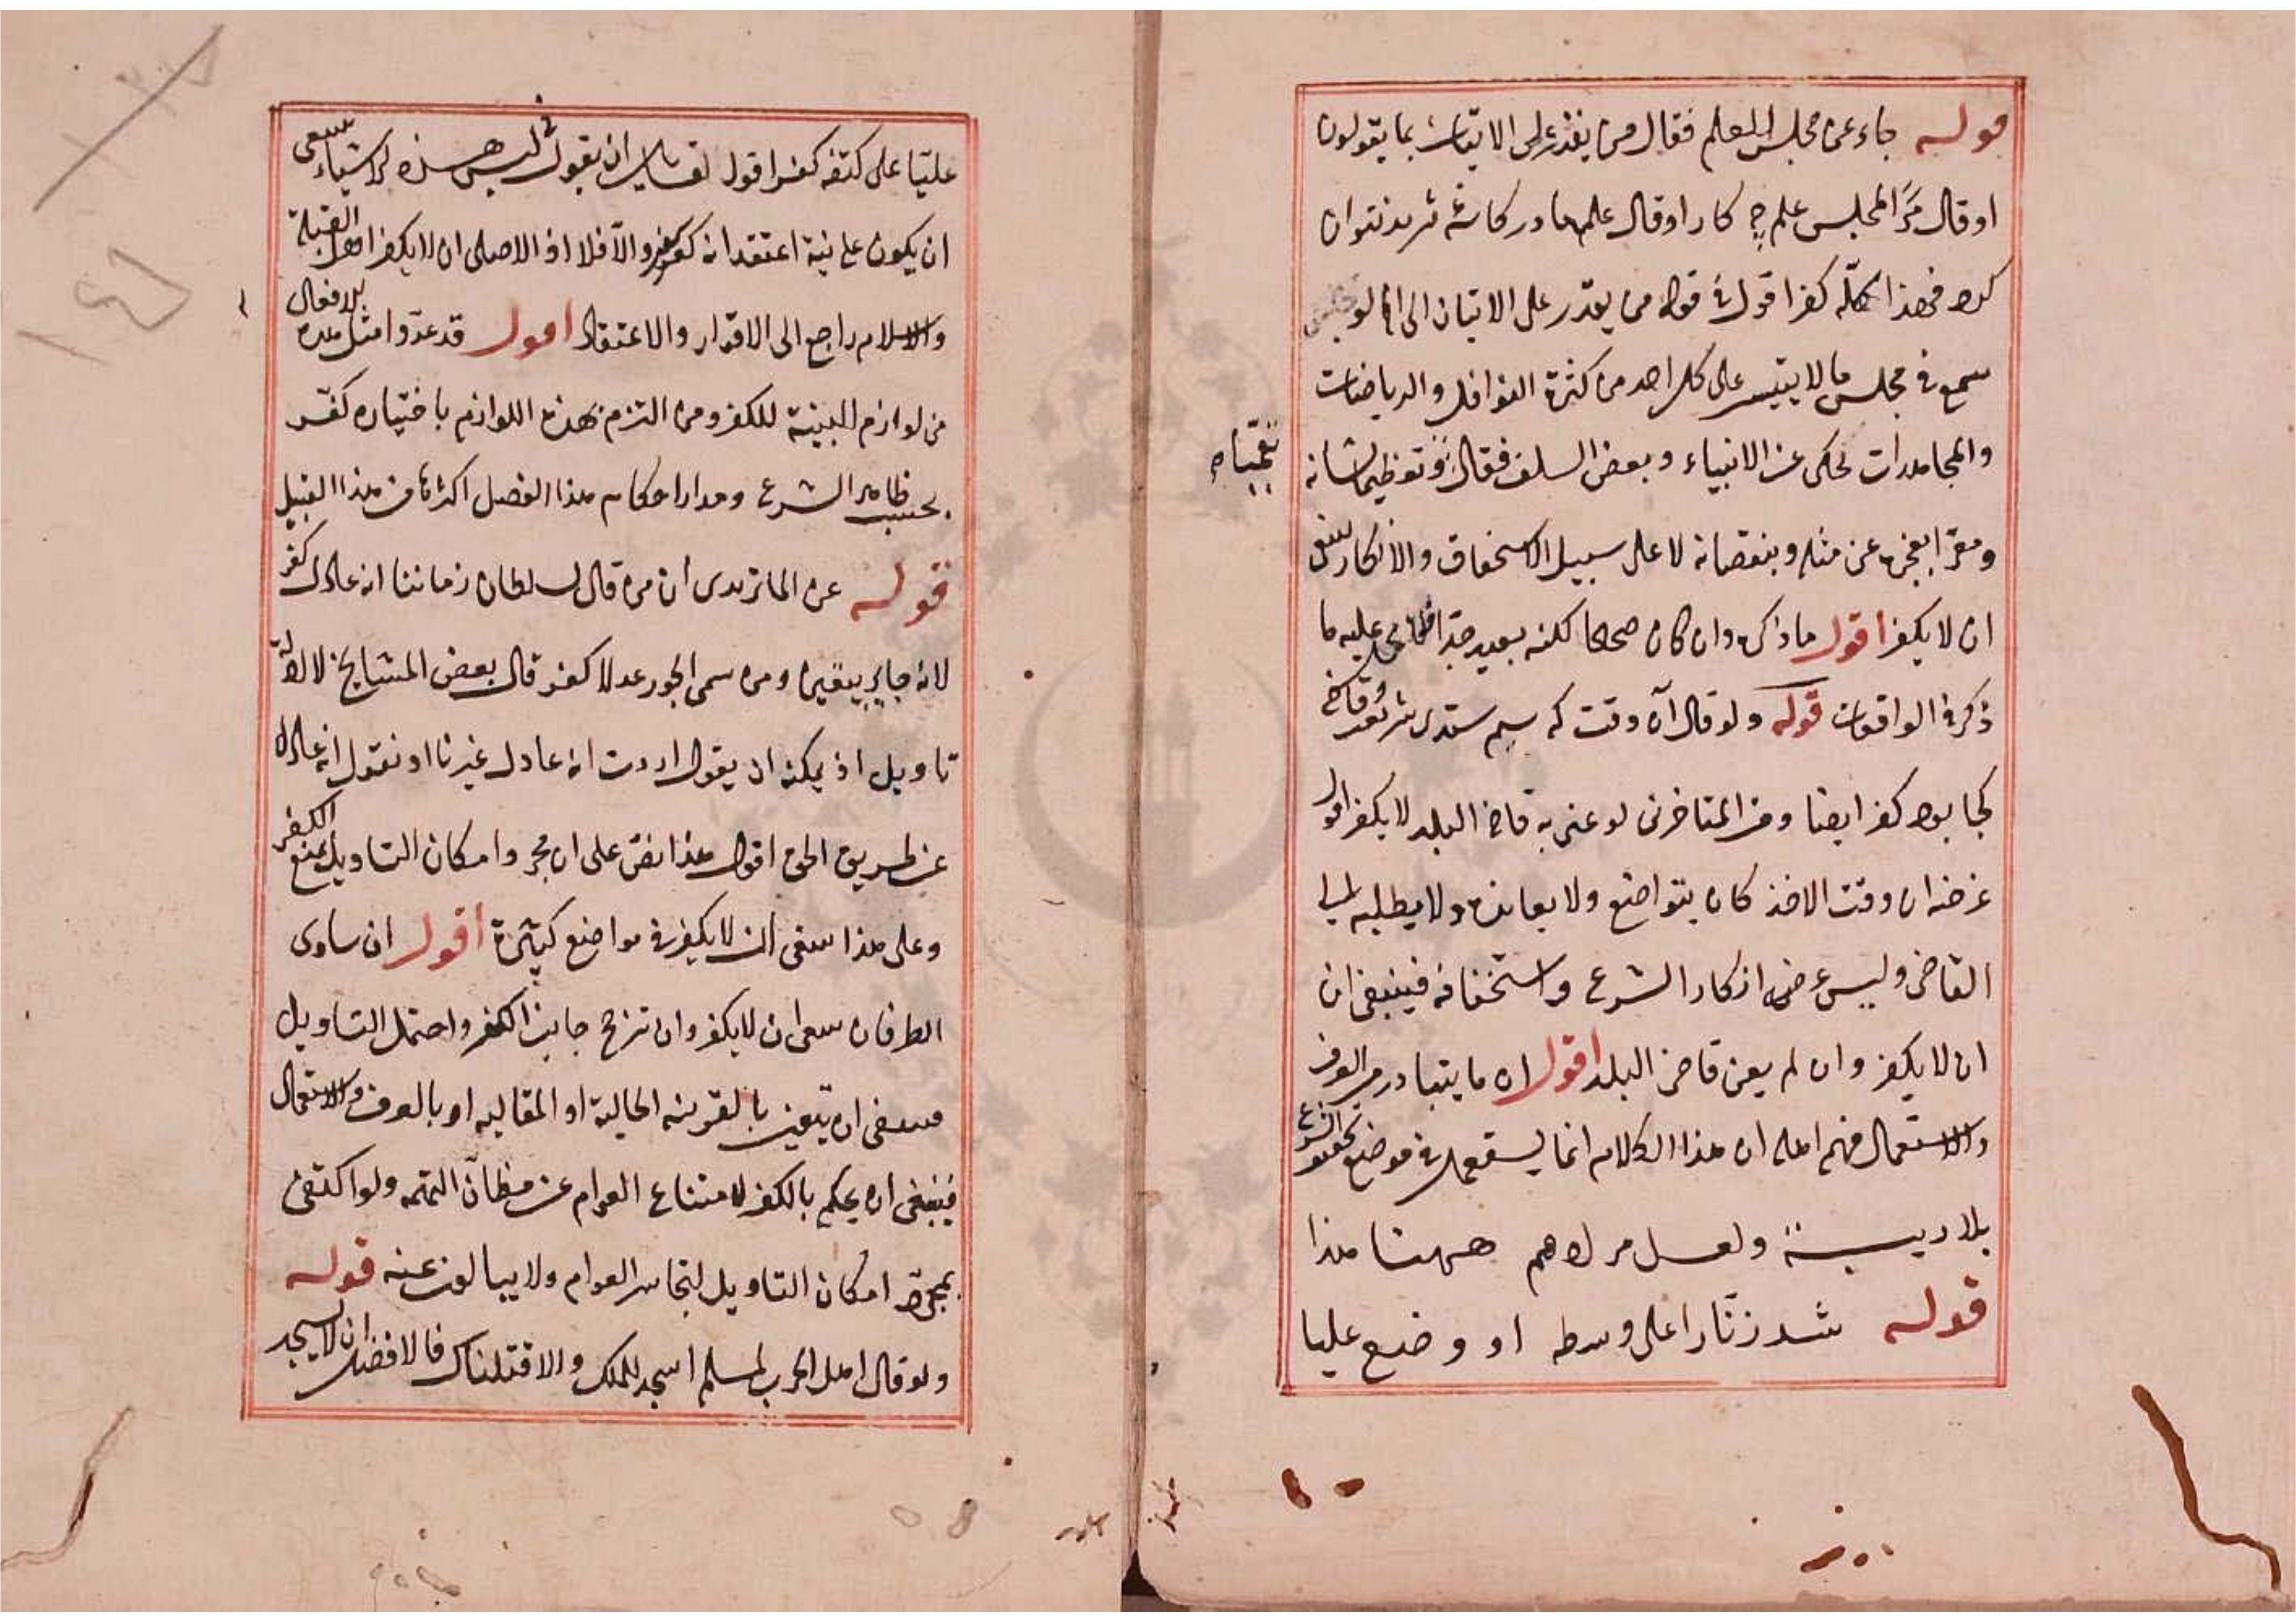 قوله جاء عن مجلس العلم فقال من يقدر على الاتيان بما يقولون
او قال مرا لمجلس علم چه كار او قال علمها در كاسه ثريد نتوان
كرد فهذا كله كفر اقول في قوله من يقدر على الاتيان الى اخره لو
سمع في مجلس ما لا يتيسر على كل احد من كثرة النوافل والرياضات
والمجاهدات تحكى عن الانبياء وبعض السلف فقال وتعظيما لشانه
تعجبا
ومقرا بعجزه عن مثله وبنقصانه لا على سبيل الاستخفاف والانكار ينبغي
ان لا يكفر اقول ما ذكره وان كان صحيحا لكنه بعيد جدا عليه ما
ذكر في الواقعات قوله ولو قال آن وقت كه سيم ستدى شريعت وقاضى
كجا بود كفر ايضا ومن المتاخرين لو عنى به قاضي البلد لا يكفر اقول
غرضه ان وقت الاخذ كان يتواضع ولا يعانده ولا يطلبه الى
القاضي وليس غرضه انكار الشرع واستخفافه فينبغي ان
ان لا يكفر وان لم يعن قاضي البلد اقول ان ما يتبادر من العرف
والاستعمال فهم اهله ان هذا الكلام انما يستعمل في موضع تحقير الشرع
بلا ريبة ولعل مرادهم ههنا هذا
قوله شد زنارا على وسطه او وضع عليا
عليا على كتفه كفر اقول لقائل ان يقول في لبس هذه الاشياء ينبغي
ان يكون على نية اعتقد انه كفر والا فلا اذ الاصل ان لا يكفر اهل القبلة
والاسلام راجع الى الاقرار والاعتقاد اقول قد عدوا مثل هذه الافعال
من لوازم البينة للكفر ومن التزم بهذه اللوازم باختياره كفر
بحسب ظاهر الشرع ومدار احكام هذا الفصل اكثرها من هذا القبيل
قوله عن الماتريدى ان من قال لسلطان زماننا انه عادل كفر
لانه جاير بيقين ومن سمى الجور عدلا كفر قال بعض المشايخ لا لانه
تاويل اذ يمكنه ان يقول اردت انه عادل غيرنا او نقول انه عادل
عن طريق الحق اقول هذا نص على ان مجرد امكان التاويل يمنع الكفر
وعلى هذا ينبغي ان لا يكفر في مواضع كثيرة اقول ان ساوى
الطرفان ينبغي ان لا يكفر وان ترجح جانب الكفر واحتمل التاويل
فينبغي ان يتعين بالقرينة الحالية او المقالية او بالعرف والاستعمال
فينبغي ان يحكم بالكفر لامتناع العوام عن مظان التهمه ولو اكتفى
بمجرد امكان التاويل لتجاسر العوام ولا يبالون عنه قوله
ولو قال اهل الحرب لمسلم اسجد للملك والا قتلناك فالافضل ان لا يسجد